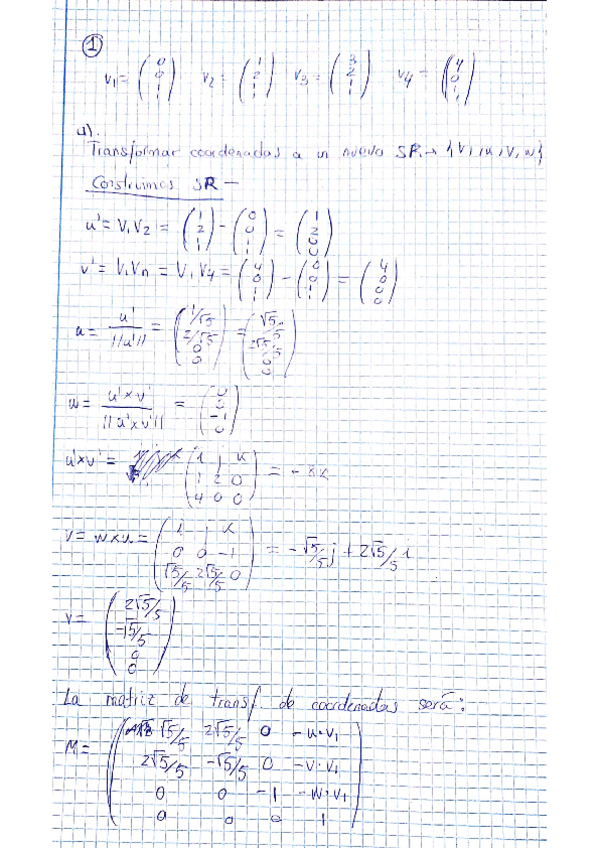 ①
v₁ = (0 0 1 1) v₂ = (1 2 1 1) v₃ = (3 2 1 1) v₄ = (4 0 1 1)
a).
Transformar coordenadas a un nuevo SR → {V₁, u, v, w}
Construimos SR —
u' = V₁V₂ = (1 2 1 1) - (0 0 1 1) = (1 2 0 0)
v' = V₁Vn = V₁V₄ = (4 0 1 1) - (0 0 1 1) = (4 0 0 0)
u = u' / ||u'|| = (1/√5 2/√5 0 0) = (√5/5 2√5/5 0 0)
w = u' × v' / ||u' × v'|| = (0 0 -1 0)
u' × v' = (i j k 1 2 0 4 0 0) = - 8k
v = w × u = (i j k 0 0 -1 √5/5 2√5/5 0) = - √5/5 j + 2√5/5 i
v = (2√5/5 -√5/5 0 0)
La matriz de transf. de coordenadas será:
M = (√5/5 2√5/5 0 -u·v₁
2√5/5 -√5/5 0 -v·v₁
0 0 -1 -w·v₁
0 0 0 1)